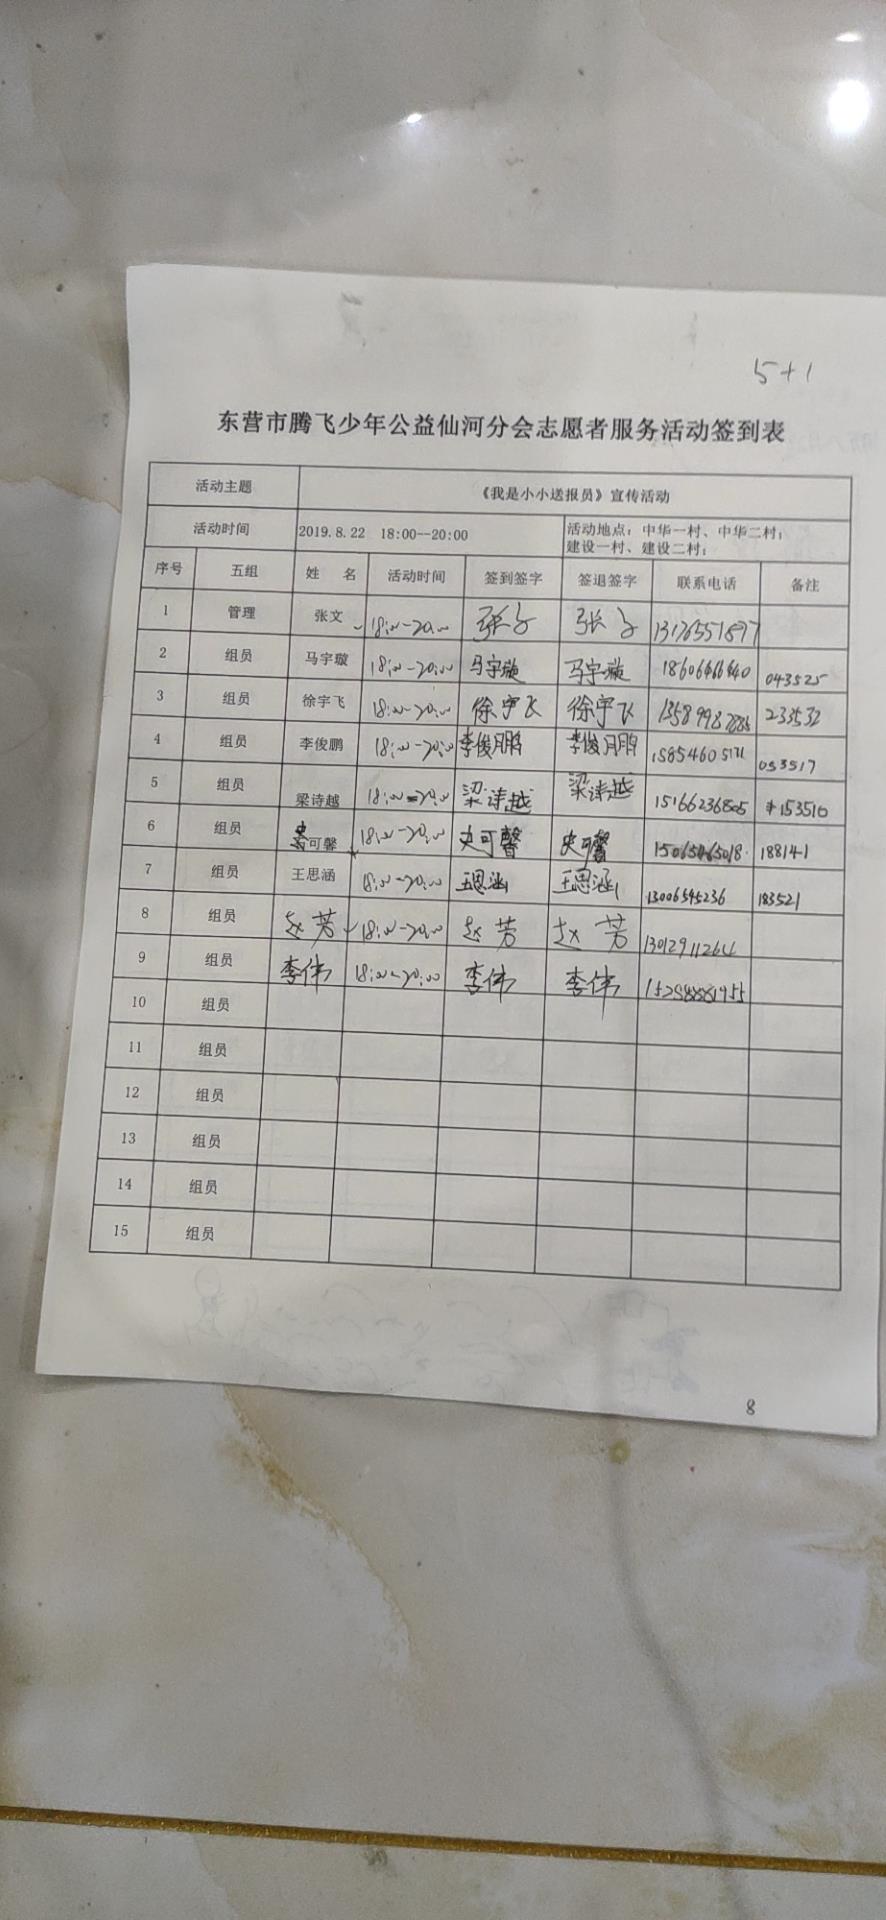 5+1
东营市腾飞少年公益仙河分会志愿者服务活动签到表
活动主题 《我是小小送报员》宣传活动
活动时间 2019.8.22 18:00--20:00 活动地点：中华一村、中华二村；
建设一村、建设二村；
序号 五组 姓 名 活动时间 签到签字 签退签字 联系电话 备注
1 管理 张文 18:00-20:00 张文 张文 13176551897
2 组员 马宇璇 18:00-20:00 马宇璇 马宇璇 043525
3 组员 徐宇飞 18:00-20:00 徐宇飞 徐宇飞 233532
4 组员 李俊鹏 18:00-20:00 李俊鹏 李俊鹏 053517
5 组员 梁诗越 18:00-20:00 梁诗越 梁诗越 15166236805 153510
6 组员 史可馨 18:00-20:00 史可馨 史可馨 188141
7 组员 王思涵 18:00-20:00 王思涵 王思涵 13006545236 183521
8 组员 赵芳 18:00-20:00 赵芳 赵芳
9 组员 李伟 18:00-20:00 李伟 李伟
10 组员
11 组员
12 组员
13 组员
14 组员
15 组员
8